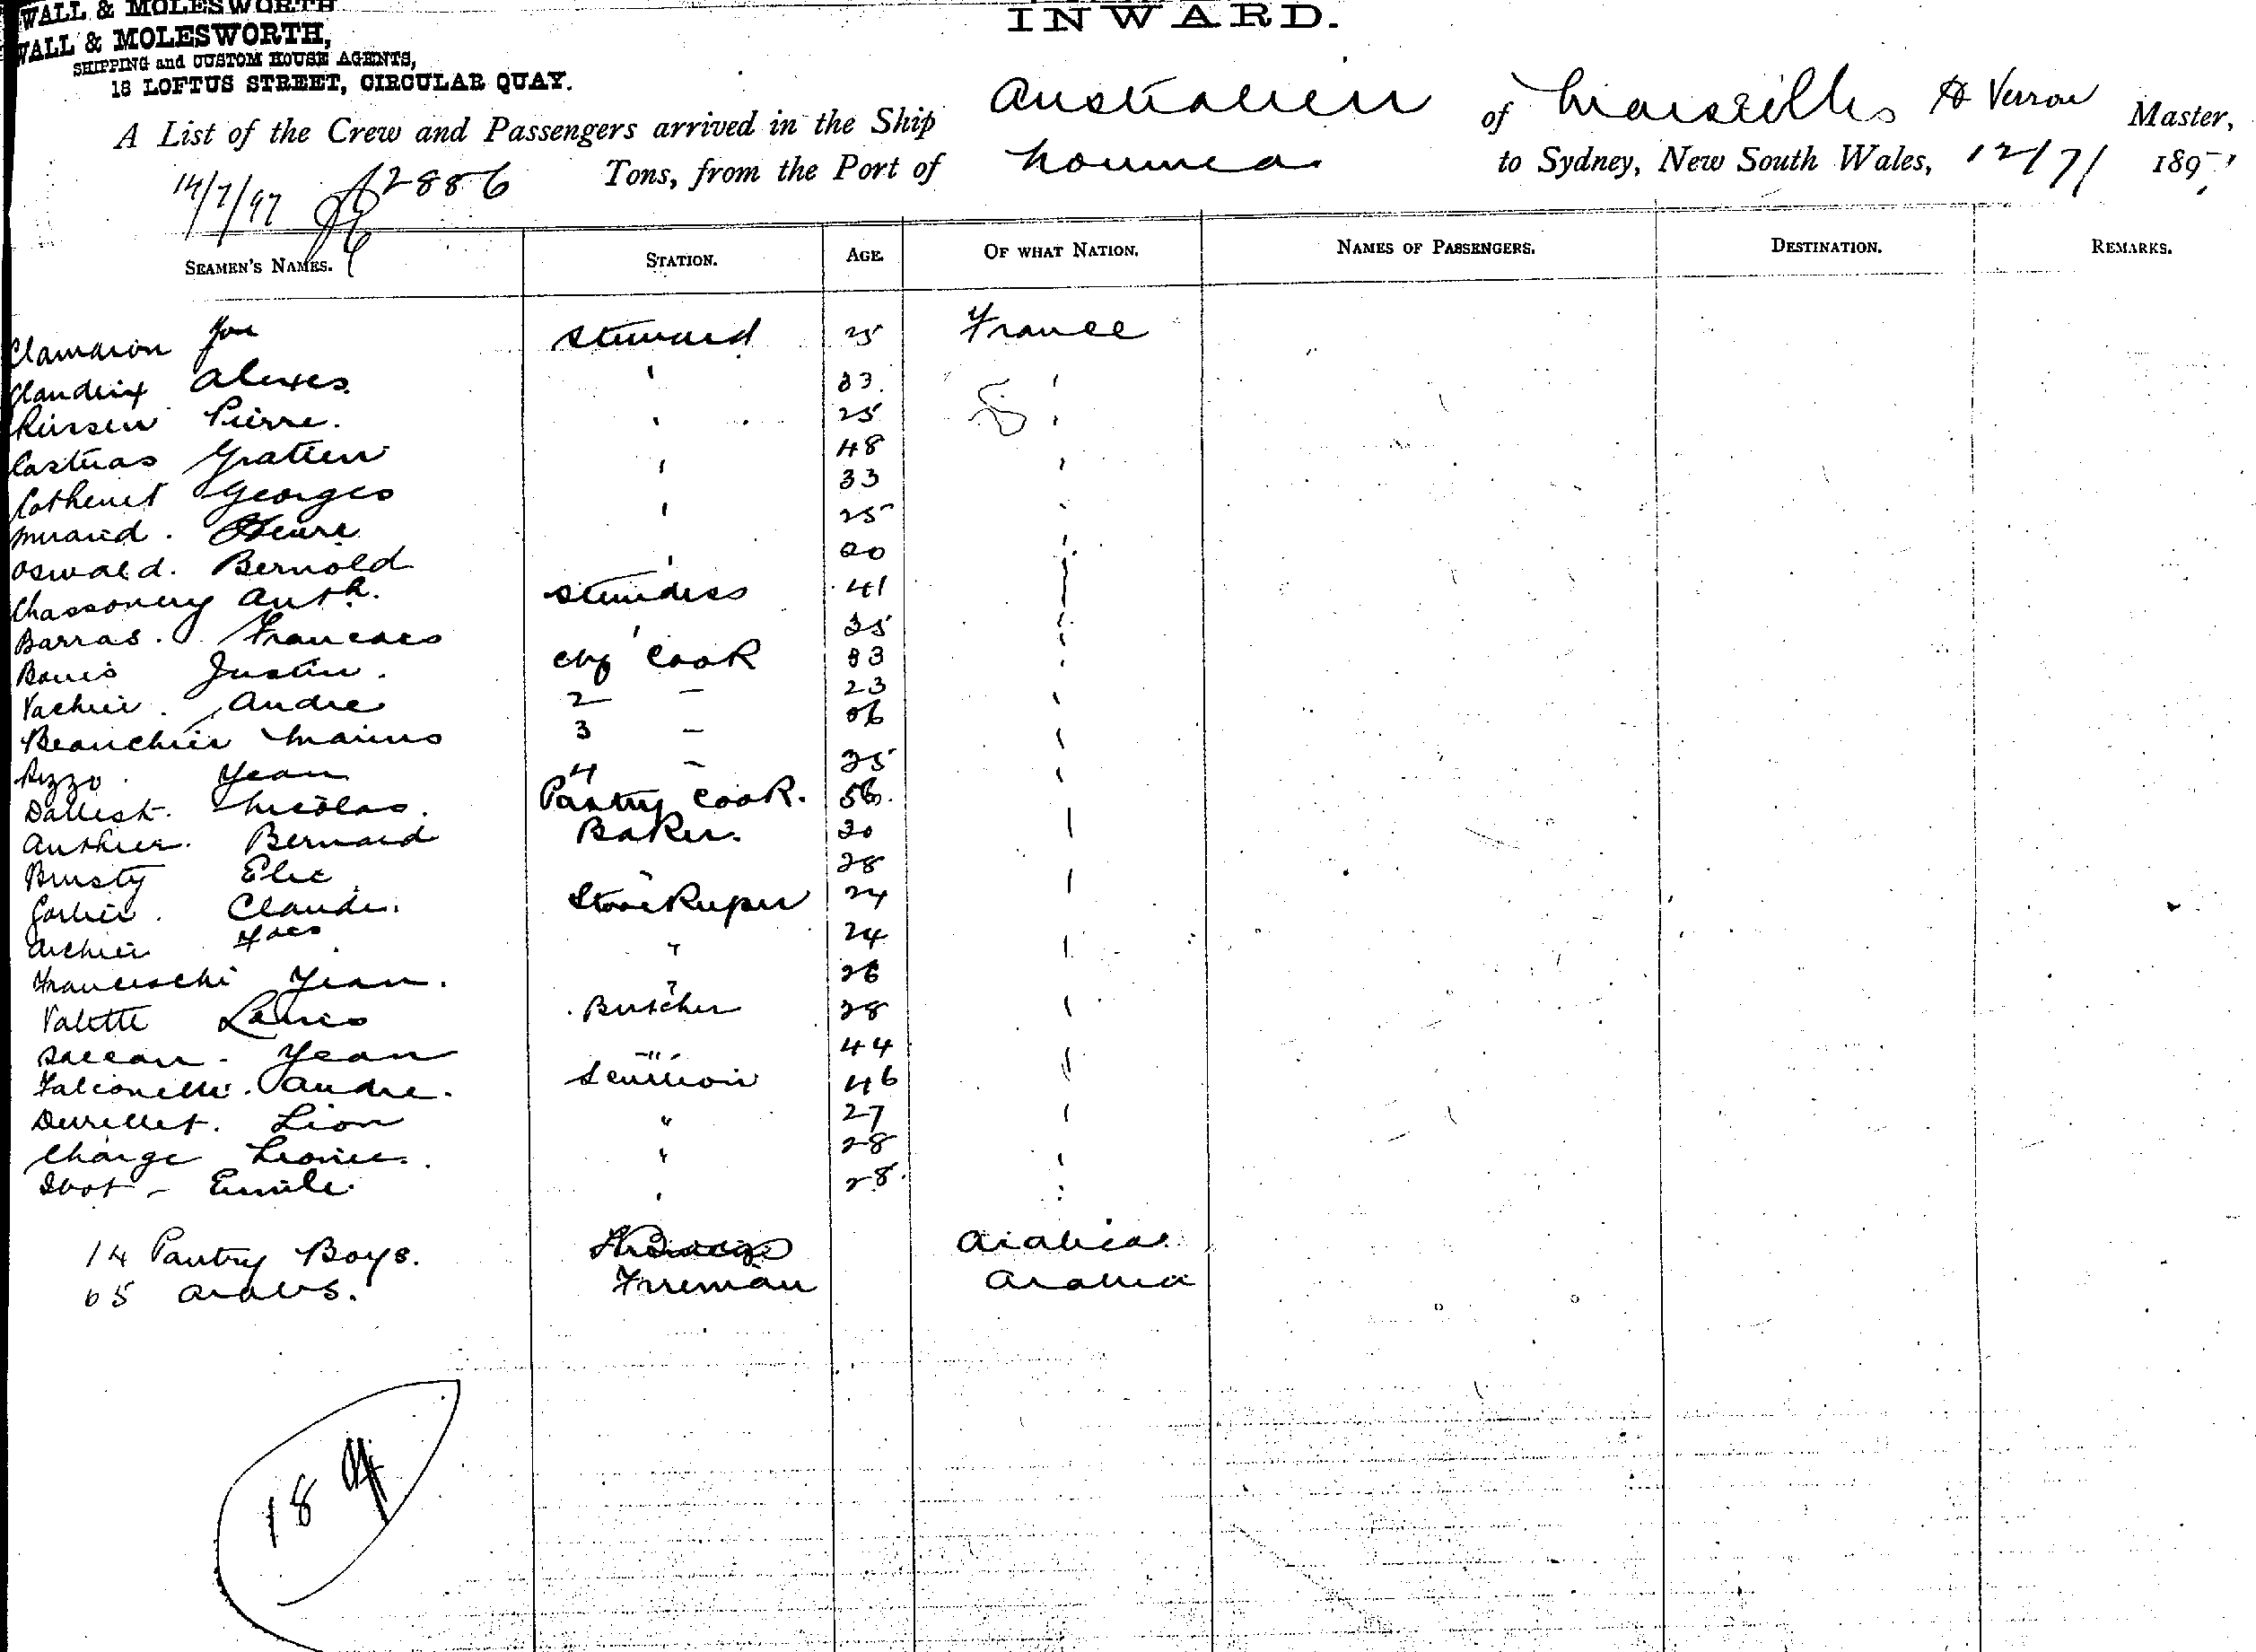 WALL & MOLESWORTH
WALL & MOLESWORTH,
SHIPPING and CUSTOM HOUSE AGENTS,
18 LOFTUS STREET, CIRCULAR QUAY.
INWARD.
A List of the Crew and Passengers arrived in the Ship Australien of Marseilles A Verron Master,
14/7/97 2886 Tons, from the Port of Noumea to Sydney, New South Wales, 12/7/ 1897
SEAMEN'S NAMES. STATION. AGE. OF WHAT NATION. NAMES OF PASSENGERS. DESTINATION. REMARKS.
Clamaron Steward 25 France
Alexes ' 33 '
Pierre. ' 25 '
Castuas Gratien ' 48 '
Cothenet Georges ' 33
Henri ' 25
Oswald. Bernold ' 20 '
Chassonery Auth. Stewardess 41
Barras. Francoes ' 35
Justin. Chf Cook 33 '
Vachier. Andre 2 — 23 '
Beauchier Marius 3 — '
Rizzo. Jean 4 — 35 '
Dallest. Nicolas. Pastry Cook. 56.
Authier. Bernard Baker. 30
Brusty Elie " 28
Claude. Storekeeper 24
Archier " 24
Franceschi Jean. " 26
Valette Louis Butcher 28
Jean " 44
Falconetti. Andre. 46
Durellet. Leon " 27
Charge Leonie. " 28
Emile. ' 28.
14 Pantry Boys. Arabia
65 Arabs. Fireman Arabia
189